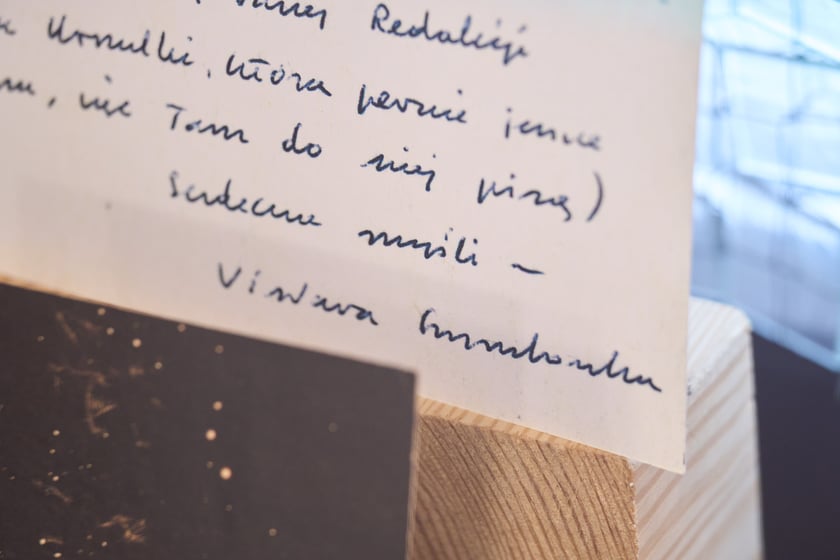 Redakcji
Urszulki, która pewnie jeszcze
, więc Tam do niej piszę)
Serdeczne myśli –
Wisława Szymborska